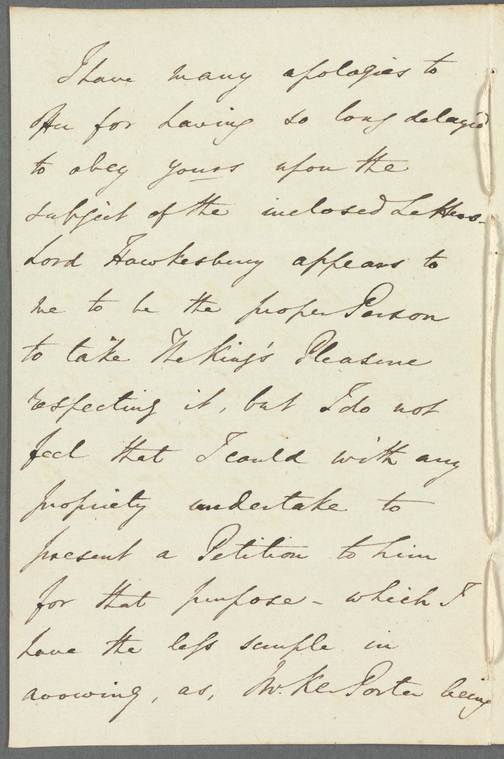 I have many apologies to
You for having so long delayed
to obey yours upon the
subject of the inclosed Letters-
Lord Hawkesbury appears to
me to be the proper Person
to take The King's Pleasure
respecting it, but I do not
feel that I could with any
propriety undertake to
present a Petition to him
for that purpose - which I
have the less scruple in
avowing, as, Mr. Ker Porter being